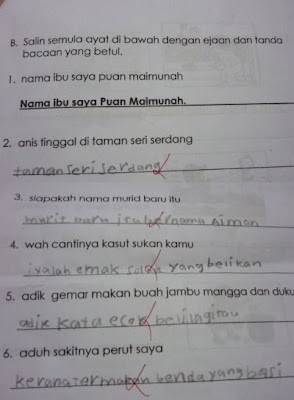 B. Salin semula ayat di bawah dengan ejaan dan tanda
bacaan yang betul.
1. nama ibu saya puan maimunah
Nama ibu saya Puan Maimunah.
2. anis tinggal di taman seri serdang
taman seri serdang
3. siapakah nama murid baru itu
murit baru itu bernama Aiman
4. wah cantinya kasut sukan kamu
iyalah emak saya yang belikan
5. adik gemar makan buah jambu mangga dan duku
adik kata esok beli lagi tau
6. aduh sakitnya perut saya
kerana termakan benda yang basi